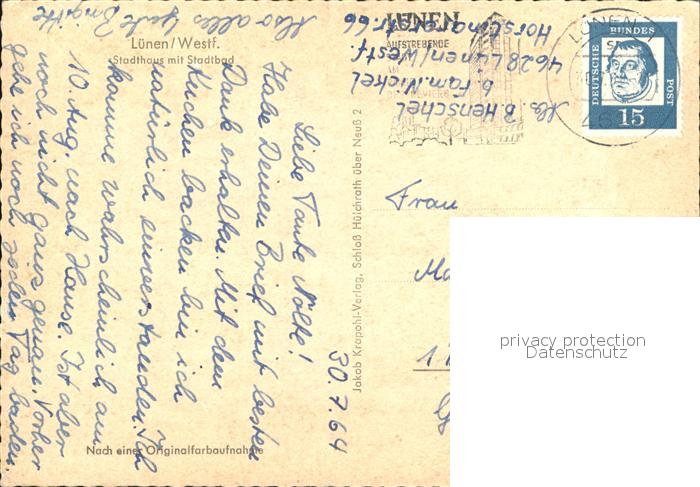 Lünen/Westf.
Stadthaus mit Stadtbad
30.7.64
Liebe Tante Nölte!
Habe Deinen Brief mit besten
Dank erhalten. Mit dem
Kuchen backen bin ich
natürlich einverstanden. Ich
komme wahrscheinlich am
10 Aug. nach Hause. Ist aber
noch nicht ganz genau. Vorher
gehe ich noch jeden Tag baden.
Also alles Gute Brigitte
Abs. B. Henschel
b. Fam. Nickel
4628 Lünen/Westf.
Nach einer Originalfarbaufnahme
Jakob Krapohl-Verlag, Schloß Hülchrath über Neuß 2
LÜNEN
AUFSTREBENDE
LÜNEN
DEUTSCHE BUNDESPOST
15
Frau
privacy protection
Datenschutz